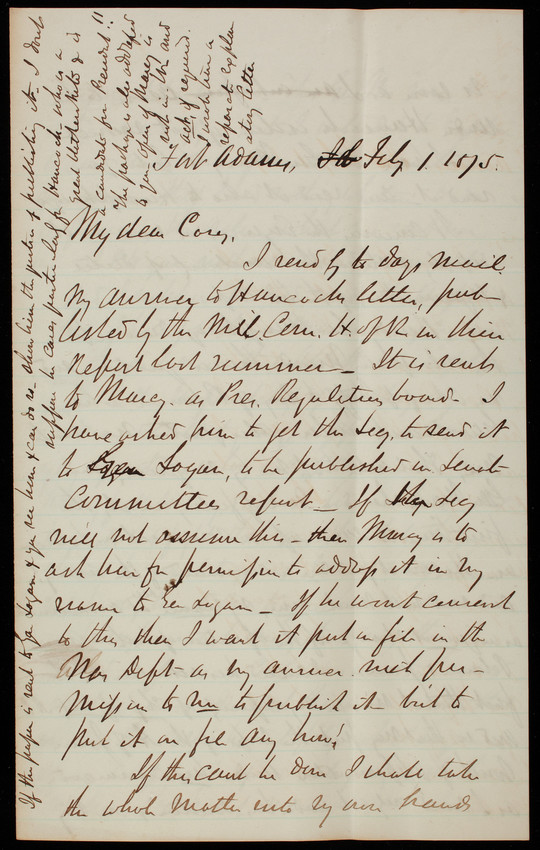 Fort Adams, Feby 1. 1875.
My dear Casey,
I send by to days mail,
my answer to Hancocks letter, pub-
lished by the Mil. Com. H. of R in their
report last summer – It is sent
to Marcy. as Pres. Regulation board – I
have asked him to get the Secy, to send it
to Logan, to be published in Senate
Committees report – If the Secy
will not assume this – then Marcy is to
ask him for permission to address it in my
name to Gen Logan – If he wont consent
to this then I want it put on file in the
War Dept – as my answer. with per-
mission to me to publish it – but to
put it on file any how!
If this cant be done I shall take
the whole matter into my own hands
If the paper is sent to Gen Logan & you see him & can do so – show him the justice of publishing it – I don't
suppose he cares particularly for Hancock who is a
great & is
a candidate for President!!
The package is also addressed
to you – Open if Marcy is
not in Wn and
act, if required.
I enclose him a
separate explan
atory letter